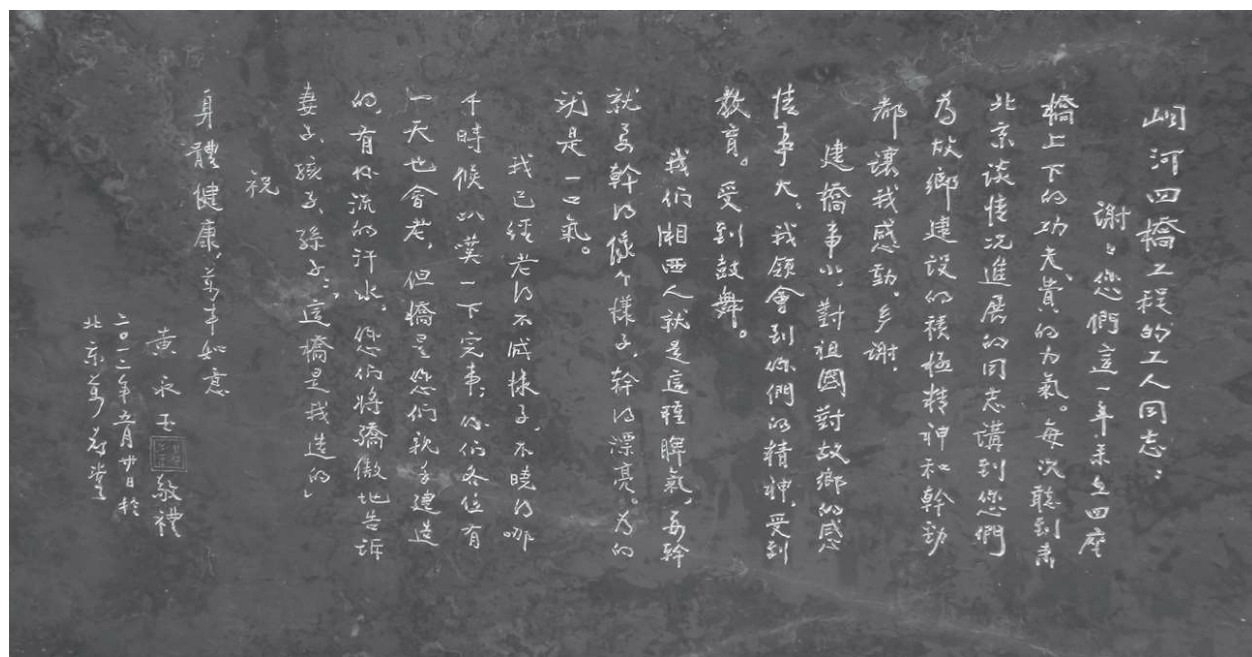 峒河四橋工程的工人同志：
謝々您們這一年来在四座
橋上下的功夫、費的力氣。每次聽到来
北京談情况進展的同志講到您們
為故鄉建设的積極精神和幹勁
都讓我感動。多謝。
建橋事小，對祖國對故鄉的感
情事大，我領會到你們的精神，受到
教育。受到鼓舞。
我们湘西人就是這種脾氣，要幹
就要幹得像个樣子，幹得漂亮。为的
就是一口氣。
我已经老得不成樣子，不曉得哪
个時候叭噗一下完事；你们各位有
一天也會老，但橋是您们親手建造
的，有你流的汗水。您们将驕傲地告訴
妻子、孩子、孫子：「這橋是我造的」
祝
身體健康，萬事如意
黄永玉 敬禮
二〇一二年五月廿日於
北京萬荷堂